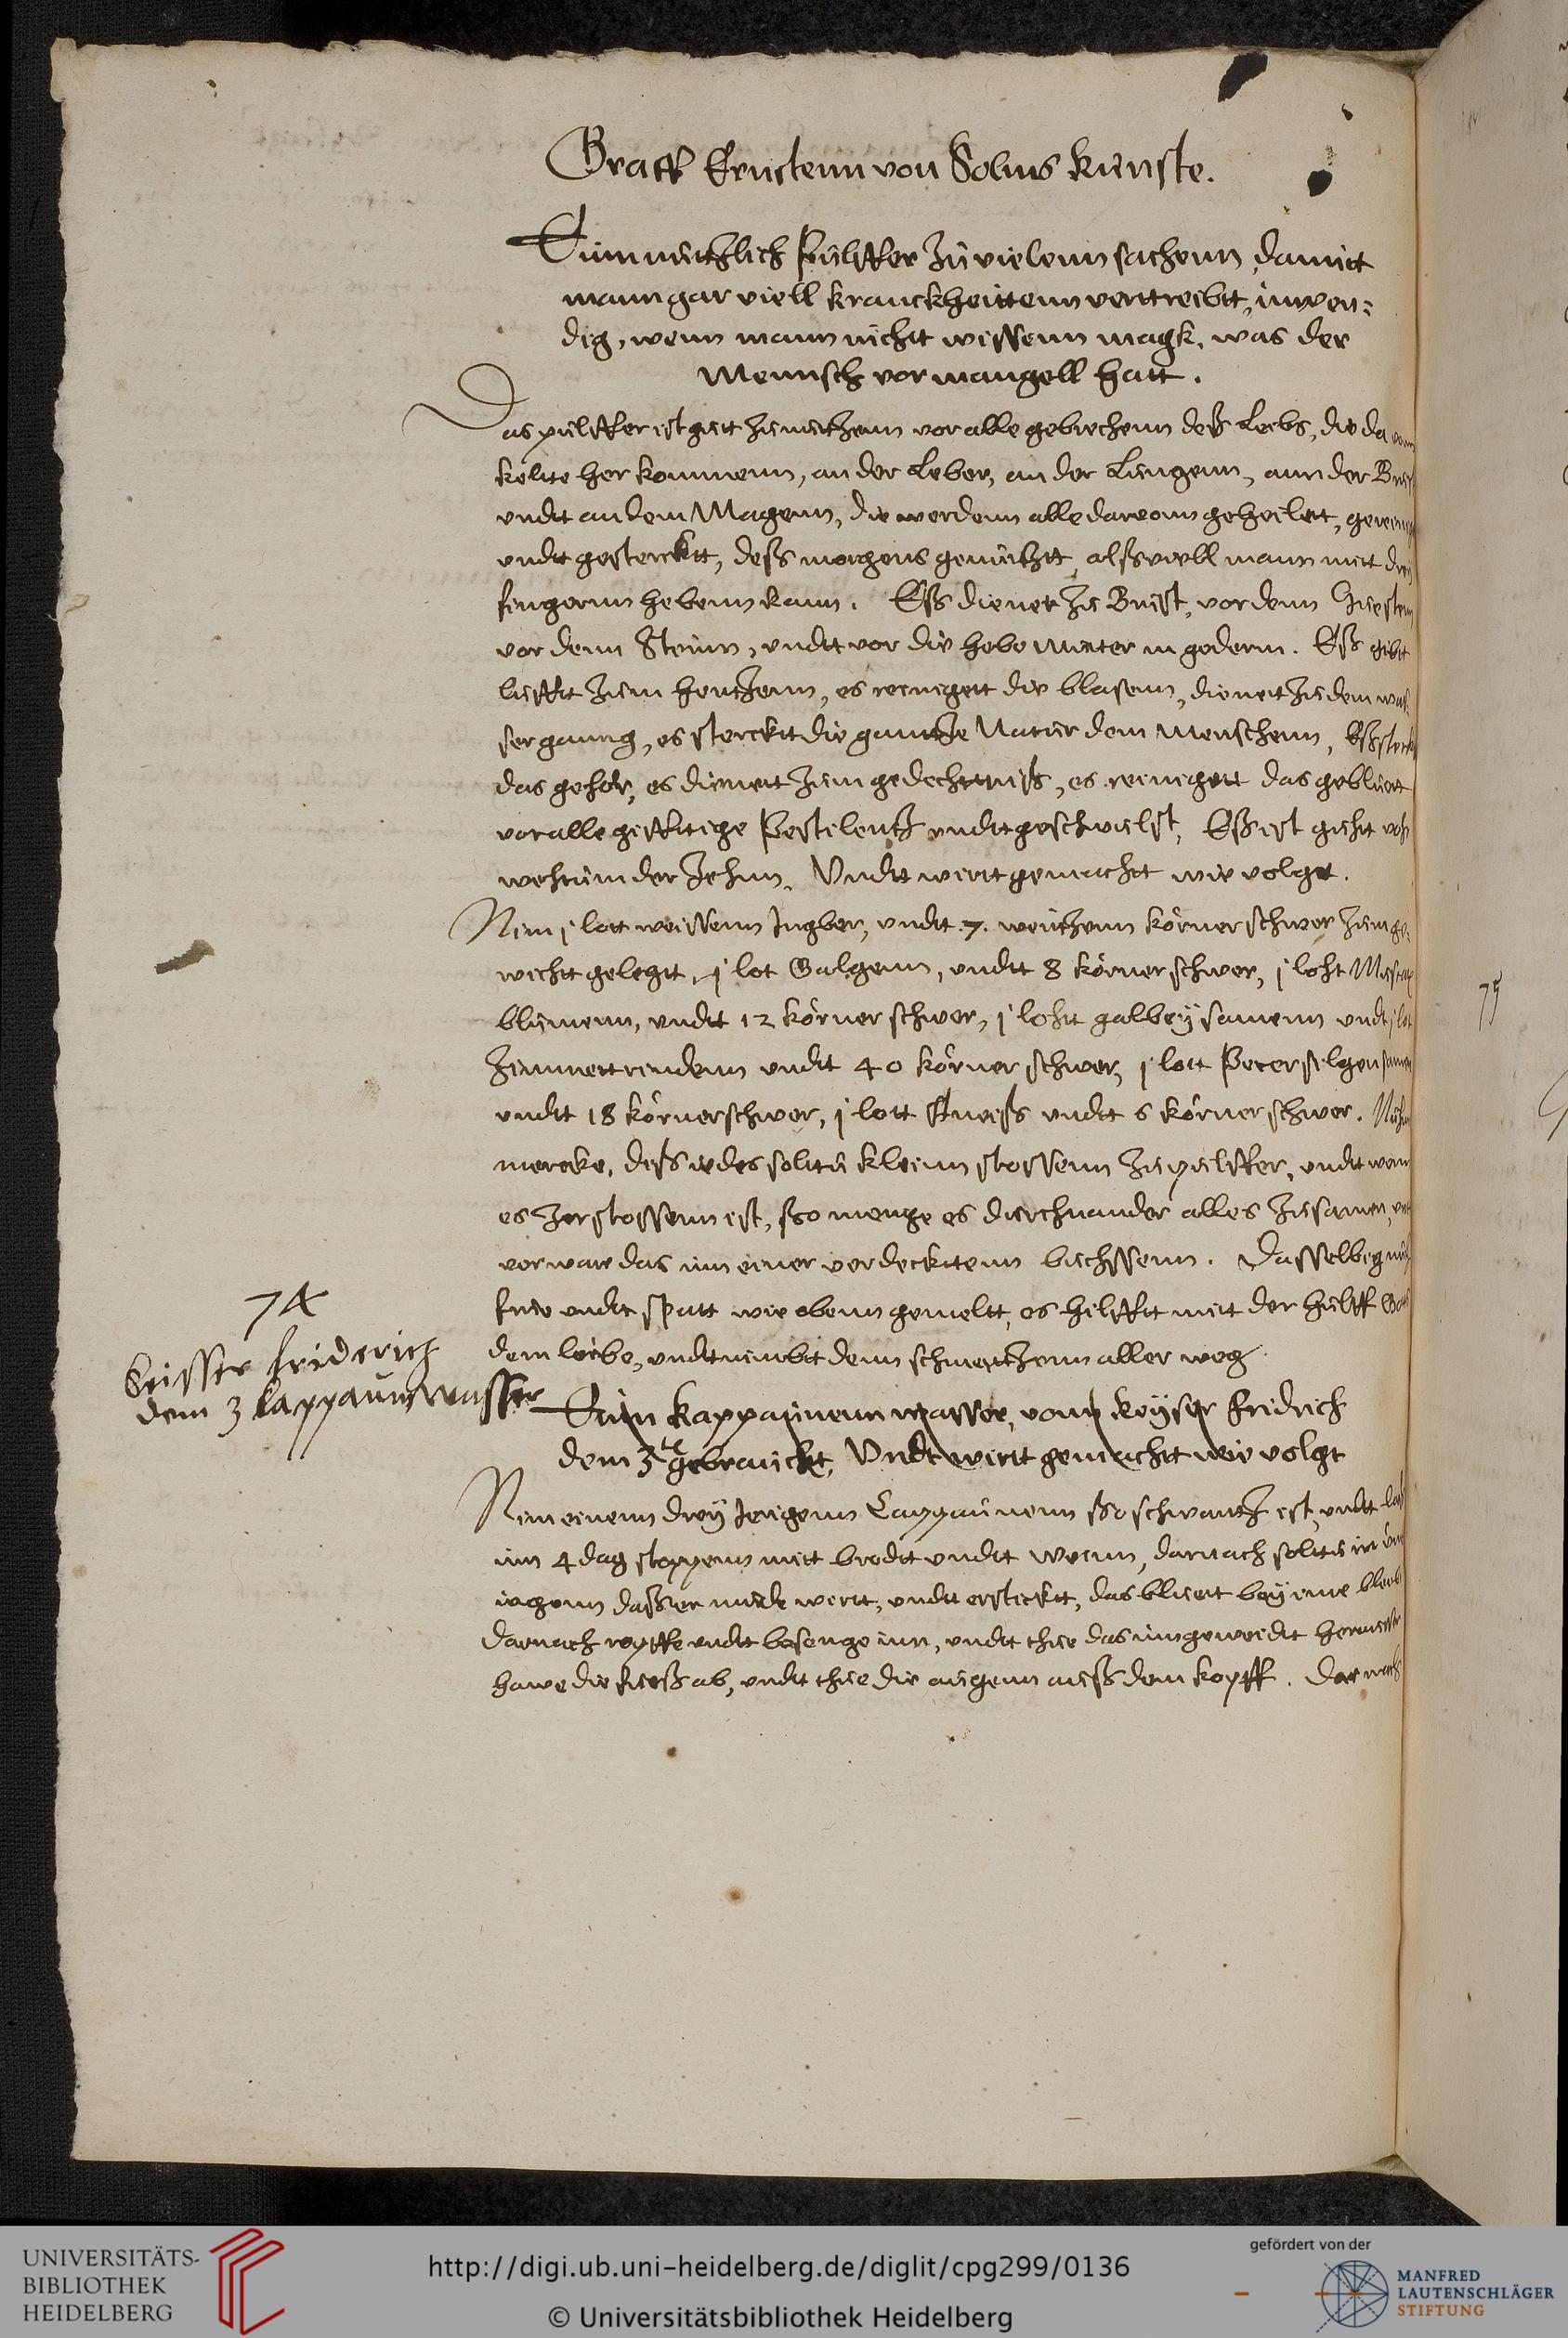 Graff Ernstenn von Solms kunste.
Ein nutzlich Pulffer zu vielenn sachenn, damitt
mann gar viell kranckheittenn vertreibtt, inwen=
dig, wenn mann nichtt wissenn magk, was der
Mennsch vor mangell hatt.
Das pulffer ist gutt zu nutzenn vor alle gebrechenn deß Leibs, die da vonn
kelte her kommenn, an der Leber, an der Lungenn, ann der Brust
undt an dem Magenn, die werdenn alle darvonn geheilett,
undt gestercktt, deß morgens genutztt, alßviell mann mitt drey
fingernn hebenn kann. Eß dienet zu Brust, vor denn Huesten
vor denn Steinn, undt vor die hebe Mutter in gederm. Eß gibtt
lufft zum hertzenn, es reinigett die blasenn, dienett zu dem was=
sergang, es sterckt die gantze Natur dem Menschenn, Eß sterckt
das gehör, es dienett zum gedechttniß, es reinigett das gebluett
vor alle gifftige Pestilentz undt geschwulst, Eß ist guht vor
wehtum der Zehnn, Undt wirtt gemachtt wie volgt.
Nim j lott weissenn Ingber, undt 7. weitzenn körner schwer zum ge=
wicht gelegt, j lot Galgenn, undt 8 körner schwer, j loht Muscat
blumenn, undt 12 körner schwer, j loht galbey samenn undt j lot
Zimmettrindenn undt 40 körner schwer, j lott Petersilgen samen
undt 18 körner schwer, j lott Aneiß undt 6 körner schwer. Nuhn
mercke, diß iedes soltu kleinn stossenn zu pulffer, undt wann
es zerstossenn ist, so menge es durchnander alles zusamen, undt
verwar das inn einer verdecktenn buchssenn. Dasselbig nutz
frue undt spatt wie obenn gemeltt, es hilfft mitt der hulff Gotts
dem leibe, undt nimbt denn schmertzenn aller weg
74
Keisser friderich
dem 3 Cappaunwasser
Ein kappaunenn wasser, vonn keyser fridrich
dem 3te gebraucht, Undt wirtt gemachtt wie volgt
Nim einenn drey Jerigenn Cappaunenn so schwartz ist, undt laß
inn 4 dag stoppenn mitt brodt undt Weinn, darnach soltu in
iagenn daß er mudt wirtt, undt erstickt, das bluett bey ime bleib
darnach ropffe undt besenge inn, undt thue das inngeweidt herausser
hawe die fueß ab, undt thue die augenn auß dem kopff. Dar nach
75
UNIVERSITÄTS-
BIBLIOTHEK
HEIDELBERG
http://digi.ub.uni-heidelberg.de/diglit/cpg299/0136
© Universitätsbibliothek Heidelberg
gefördert von der
MANFRED
LAUTENSCHLÄGER
STIFTUNG